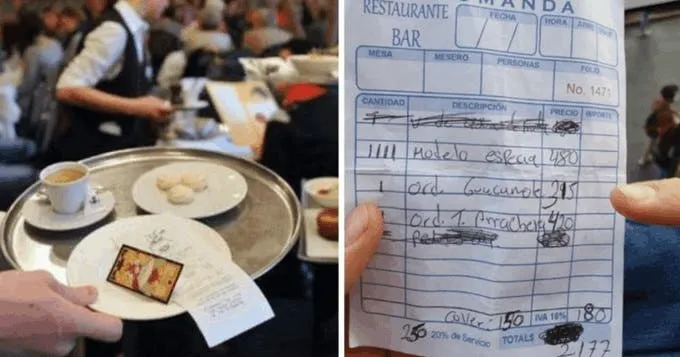 COMANDA
RESTAURANTE
BAR
FECHA
HORA
MESA
MESERO
PERSONAS
FOLIO
No. 1471
CANTIDAD DESCRIPCIÓN PRECIO IMPORTE
IIII Modelo especia 480
1 ord. Guacamole 315
1 ord. T. Arrachera 420
cover: 150 IVA 16% 180
250 20% de Servicio TOTALS
2,177